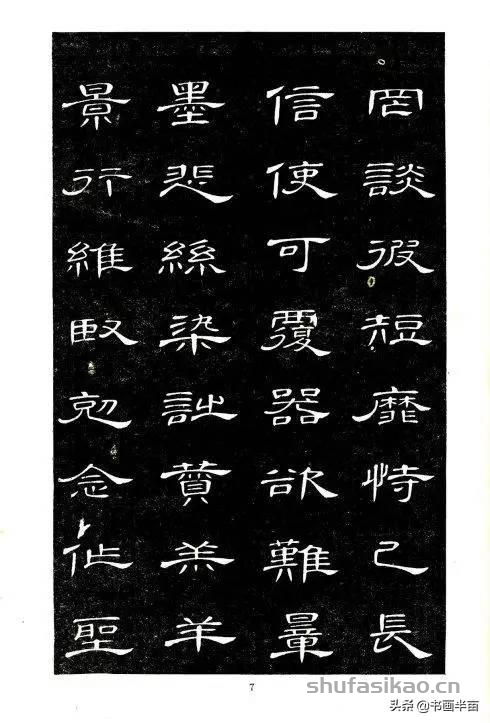 罔談彼短靡恃己長
信使可覆器欲難量
墨悲絲染詩賛羔羊
景行維臤剋念作聖
7
shufasikao.cn
头条 @书画半亩